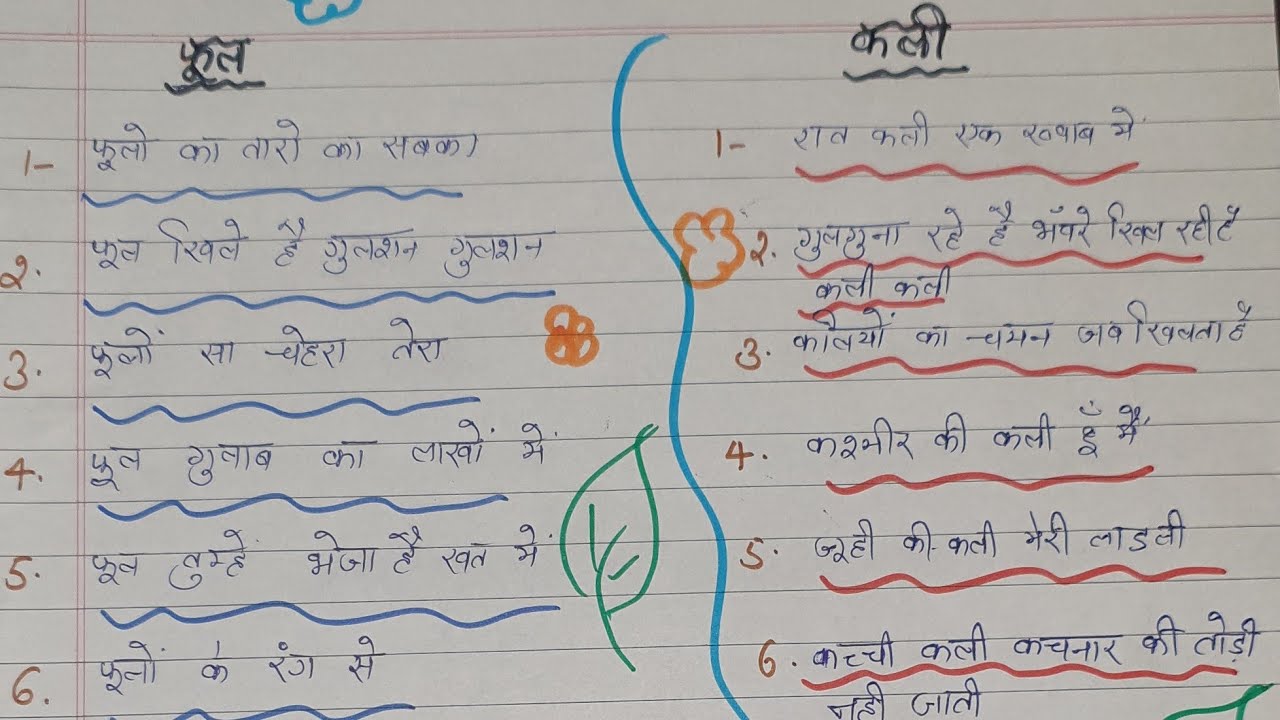 फूल
1- फूलो का तारो का सबका
2. फूल खिले है गुलशन गुलशन
3. फूलों सा चेहरा तेरा
4. फूल गुलाब का लाखों में
5. फूल तुम्हें भेजा है खत में
6. फूलों के रंग से
कली
1- रात कली एक ख्वाब में
2. गुनगुना रहे है भँवरे खिल रही है
कली कली
3. कलियों का चमन जब खिलता है
4. कश्मीर की कली हूँ मैं
5. जूही की कली मेरी लाडली
6. कच्ची कली कचनार की तोड़ी
नही जाती